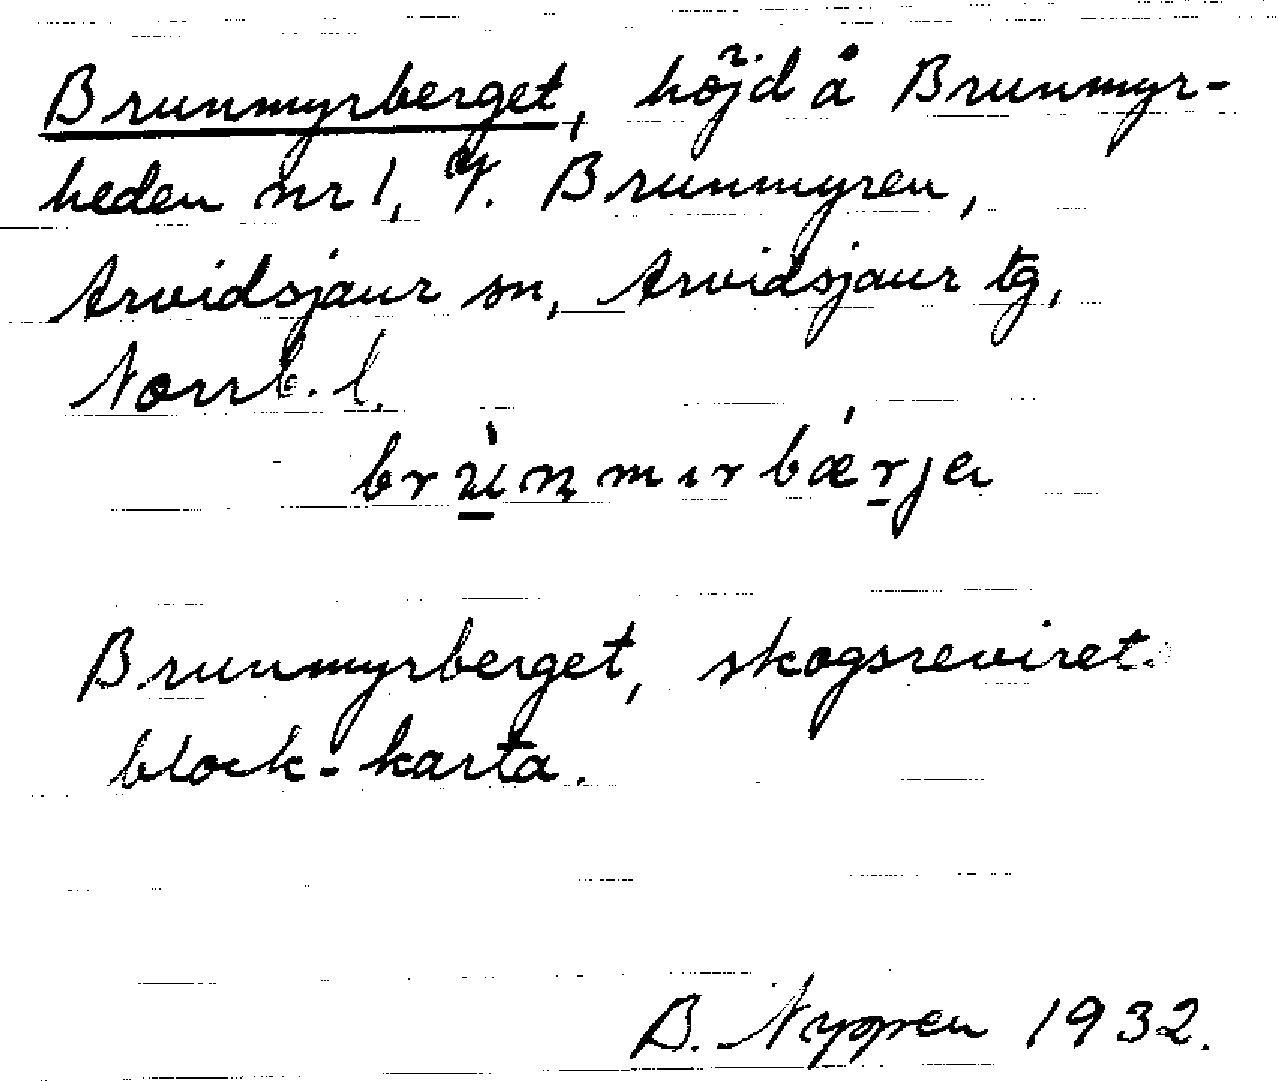 Brunmyrberget, höjd å Brunmyr-
heden nr 1, Y. Brunmyren,
Arvidsjaur sn, Arvidsjaur tg,
Norrb. l.
Brunmyrberget, skogsreviret
block-karta.
B. Nygren 1932.